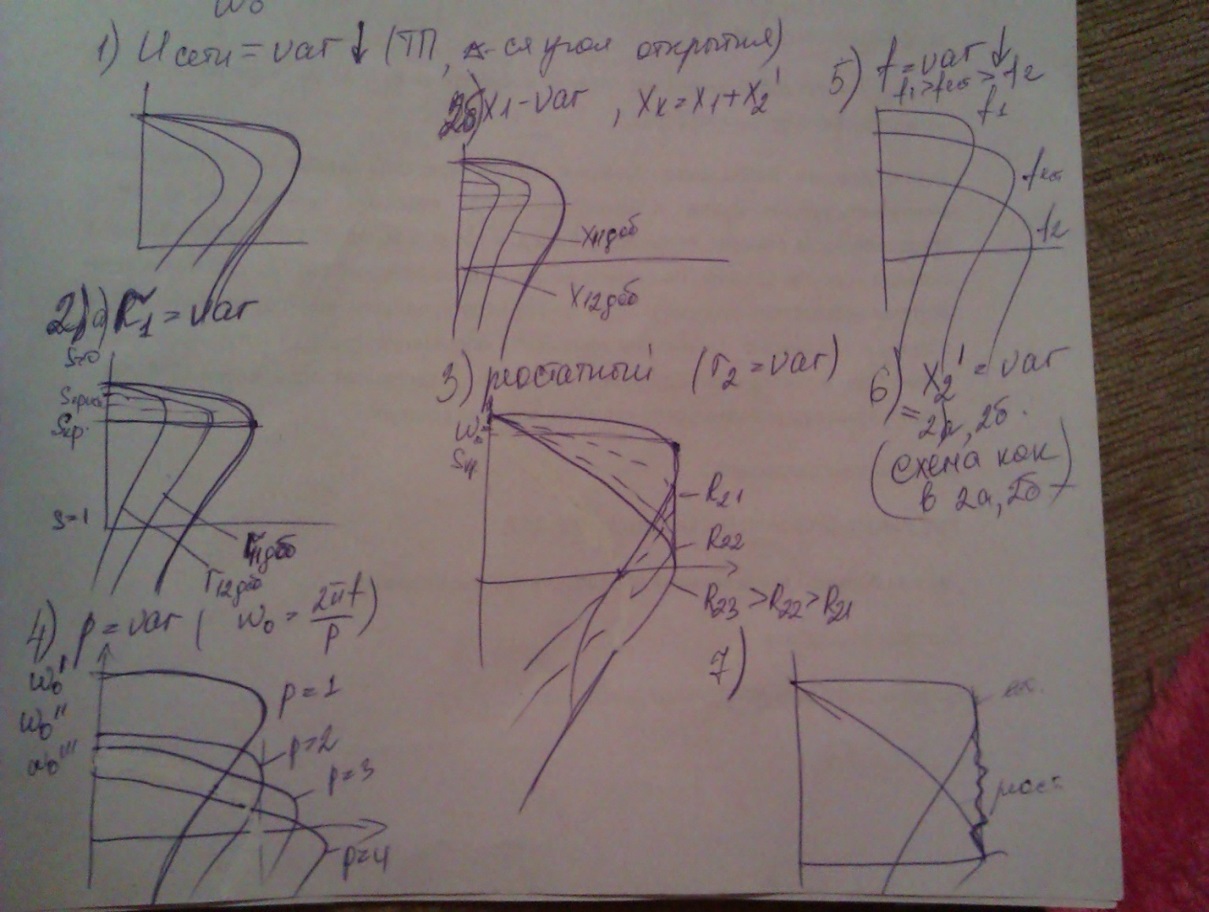 ω₀
1) Uсети = var ↓ (ТП, -ся угол открытия)
2б) X₁ - var , Xк = X₁ + X₂'
X₁₁доб
X₁₂доб
5) f = var ↓
f₁ > fест > f₂
f₁
fест
f₂
2) a) r₁ = var
S=0
Sкр.
S=1
r₁₁доб
r₁₂доб
3) реостатный (r₂ = var)
ω₀
Sкр
R₂₁
R₂₂
R₂₃ > R₂₂ > R₂₁
6) X₂' = var
= 2а, 2б.
(схема как
в 2а, 2б)
4) p = var ( ω₀ = 2πf/p )
ω₀'
ω₀''
ω₀'''
p=1
p=2
p=3
p=4
7)
ест.
реост.